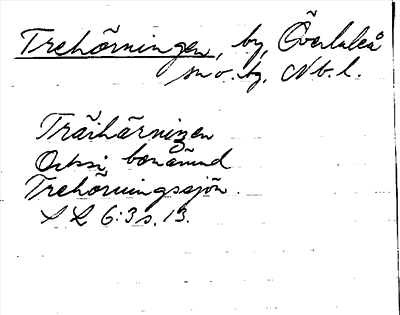 Trehörningen, by, Överluleå
sn o. tg. Nb. l.
Träihärningen
Trehörningssjön.
S L 6:3 s. 13.